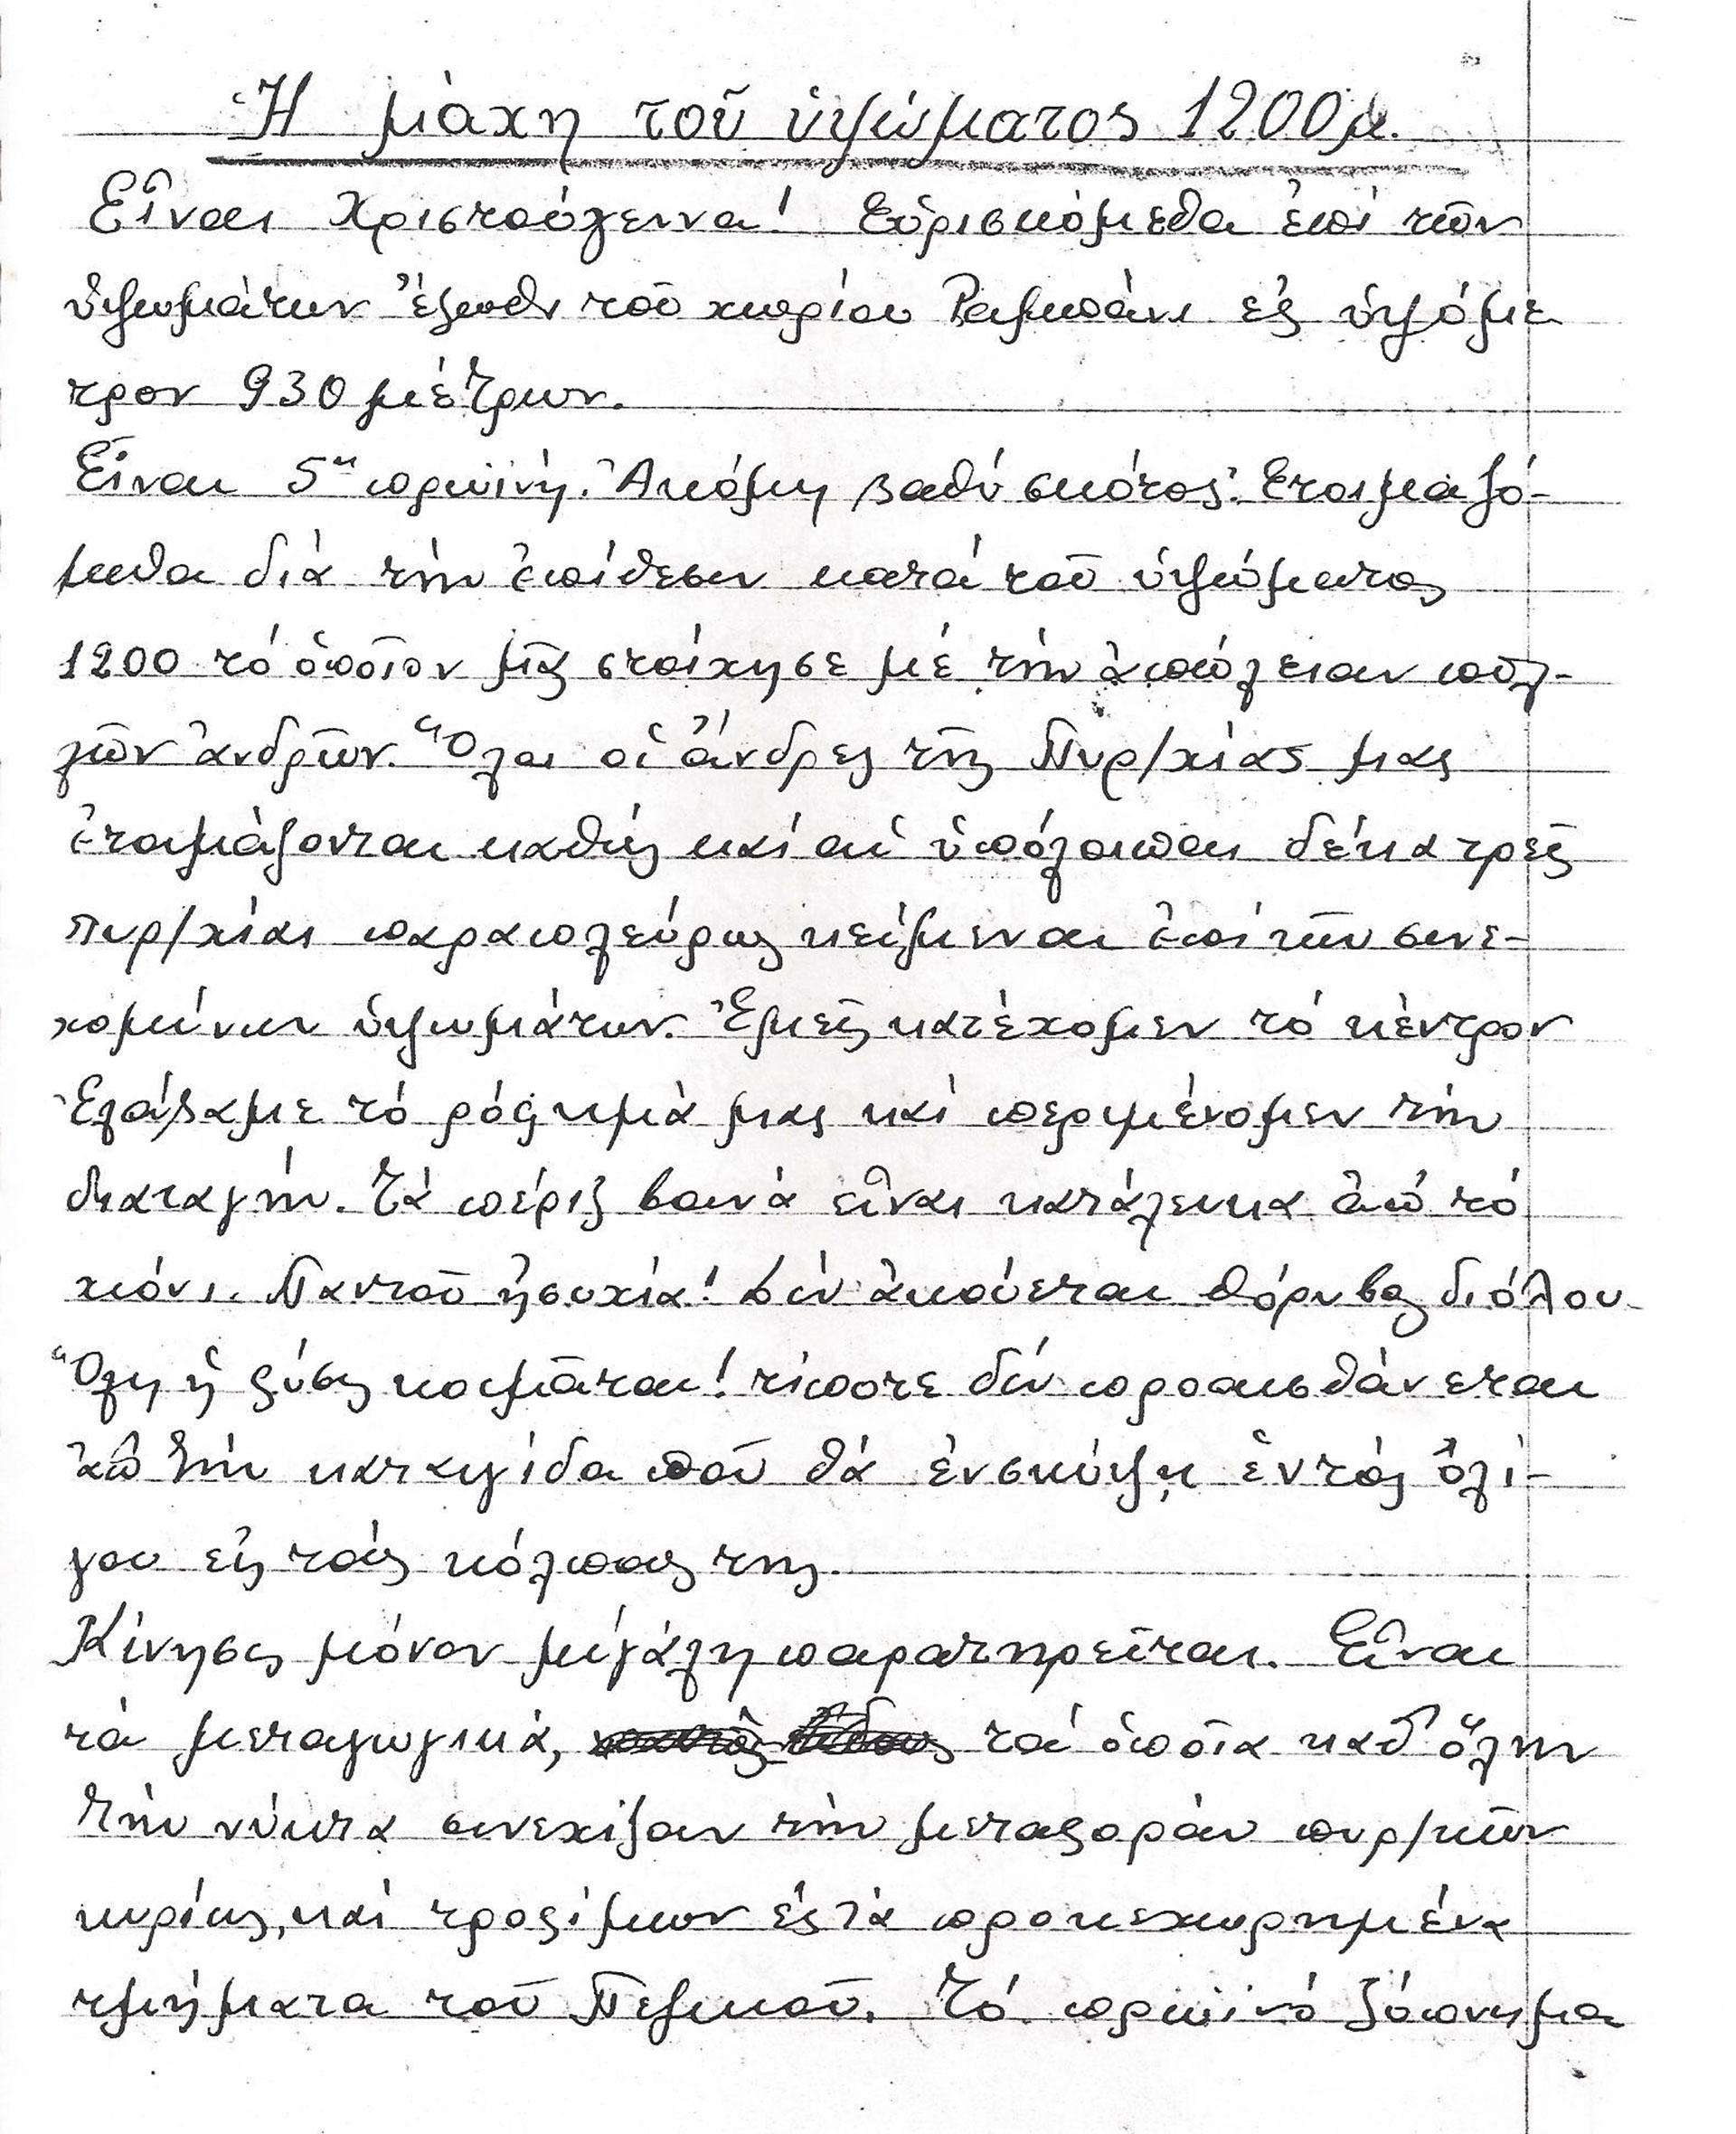 Ἡ μάχη τοῦ ὑψώματος 1200μ.
Εἶναι Χριστούγεννα! Εὑρισκόμεθα ἐπί τῶν
ὑψωμάτων ἔξωθι τοῦ χωρίου Ραμπάνι εἰς ὑψόμε
τρον 930 μέτρων.
Εἶναι 5η πρωϊνή. Ἀκόμη βαθύ σκότος. Ετοιμαζό-
μεθα διά τήν ἐπίθεσιν κατά τοῦ ὑψώματος
1200 τό ὁποῖον μᾶς στοίχησε μέ τήν ἀπώλειαν πολ-
λῶν ἀνδρῶν. Ὅλοι οἱ ἄνδρες τῆς Πυρ/χίας μας
ἑτοιμάζονται καθώς καί αἱ ὑπόλοιποι δέκα τρεῖς
πυρ/χίαι παραπλεύρως κείμεναι ἐπί τῶν συνε-
χομένων ὑψωμάτων. Ἐμεῖς κατέχομεν τό κέντρον
Ἐλάβαμε τό ρόφημά μας καί περιμένομεν τήν
διαταγήν. Τά πέριξ βουνά εἶναι κατάλευκα ἀπό τό
χιόνι. Παντοῦ ἡσυχία! Δέν ἀκούεται θόρυβος διόλου
Ὅλη ἡ φύσις κοιμᾶται! τίποτε δέν προαισθάνεται
ἀπό τήν καταιγίδα ποῦ θά ἐνσκύψῃ ἐντός ὀλί-
γου εἰς τούς κόλπους της.
Κίνησις μόνον μεγάλη παρατηρεῖται. Εἶναι
τά μεταγωγικά, τά ὁποῖα καθ' ὅλην
τήν νύκτα συνεχίζουν τήν μεταφοράν πυρ/κῶν
κυρίως, καί τροφίμων εἰς τά προκεχωρημένα
τμήματα τοῦ Πεζικοῦ. Τό πρωϊνό ξύπνημα